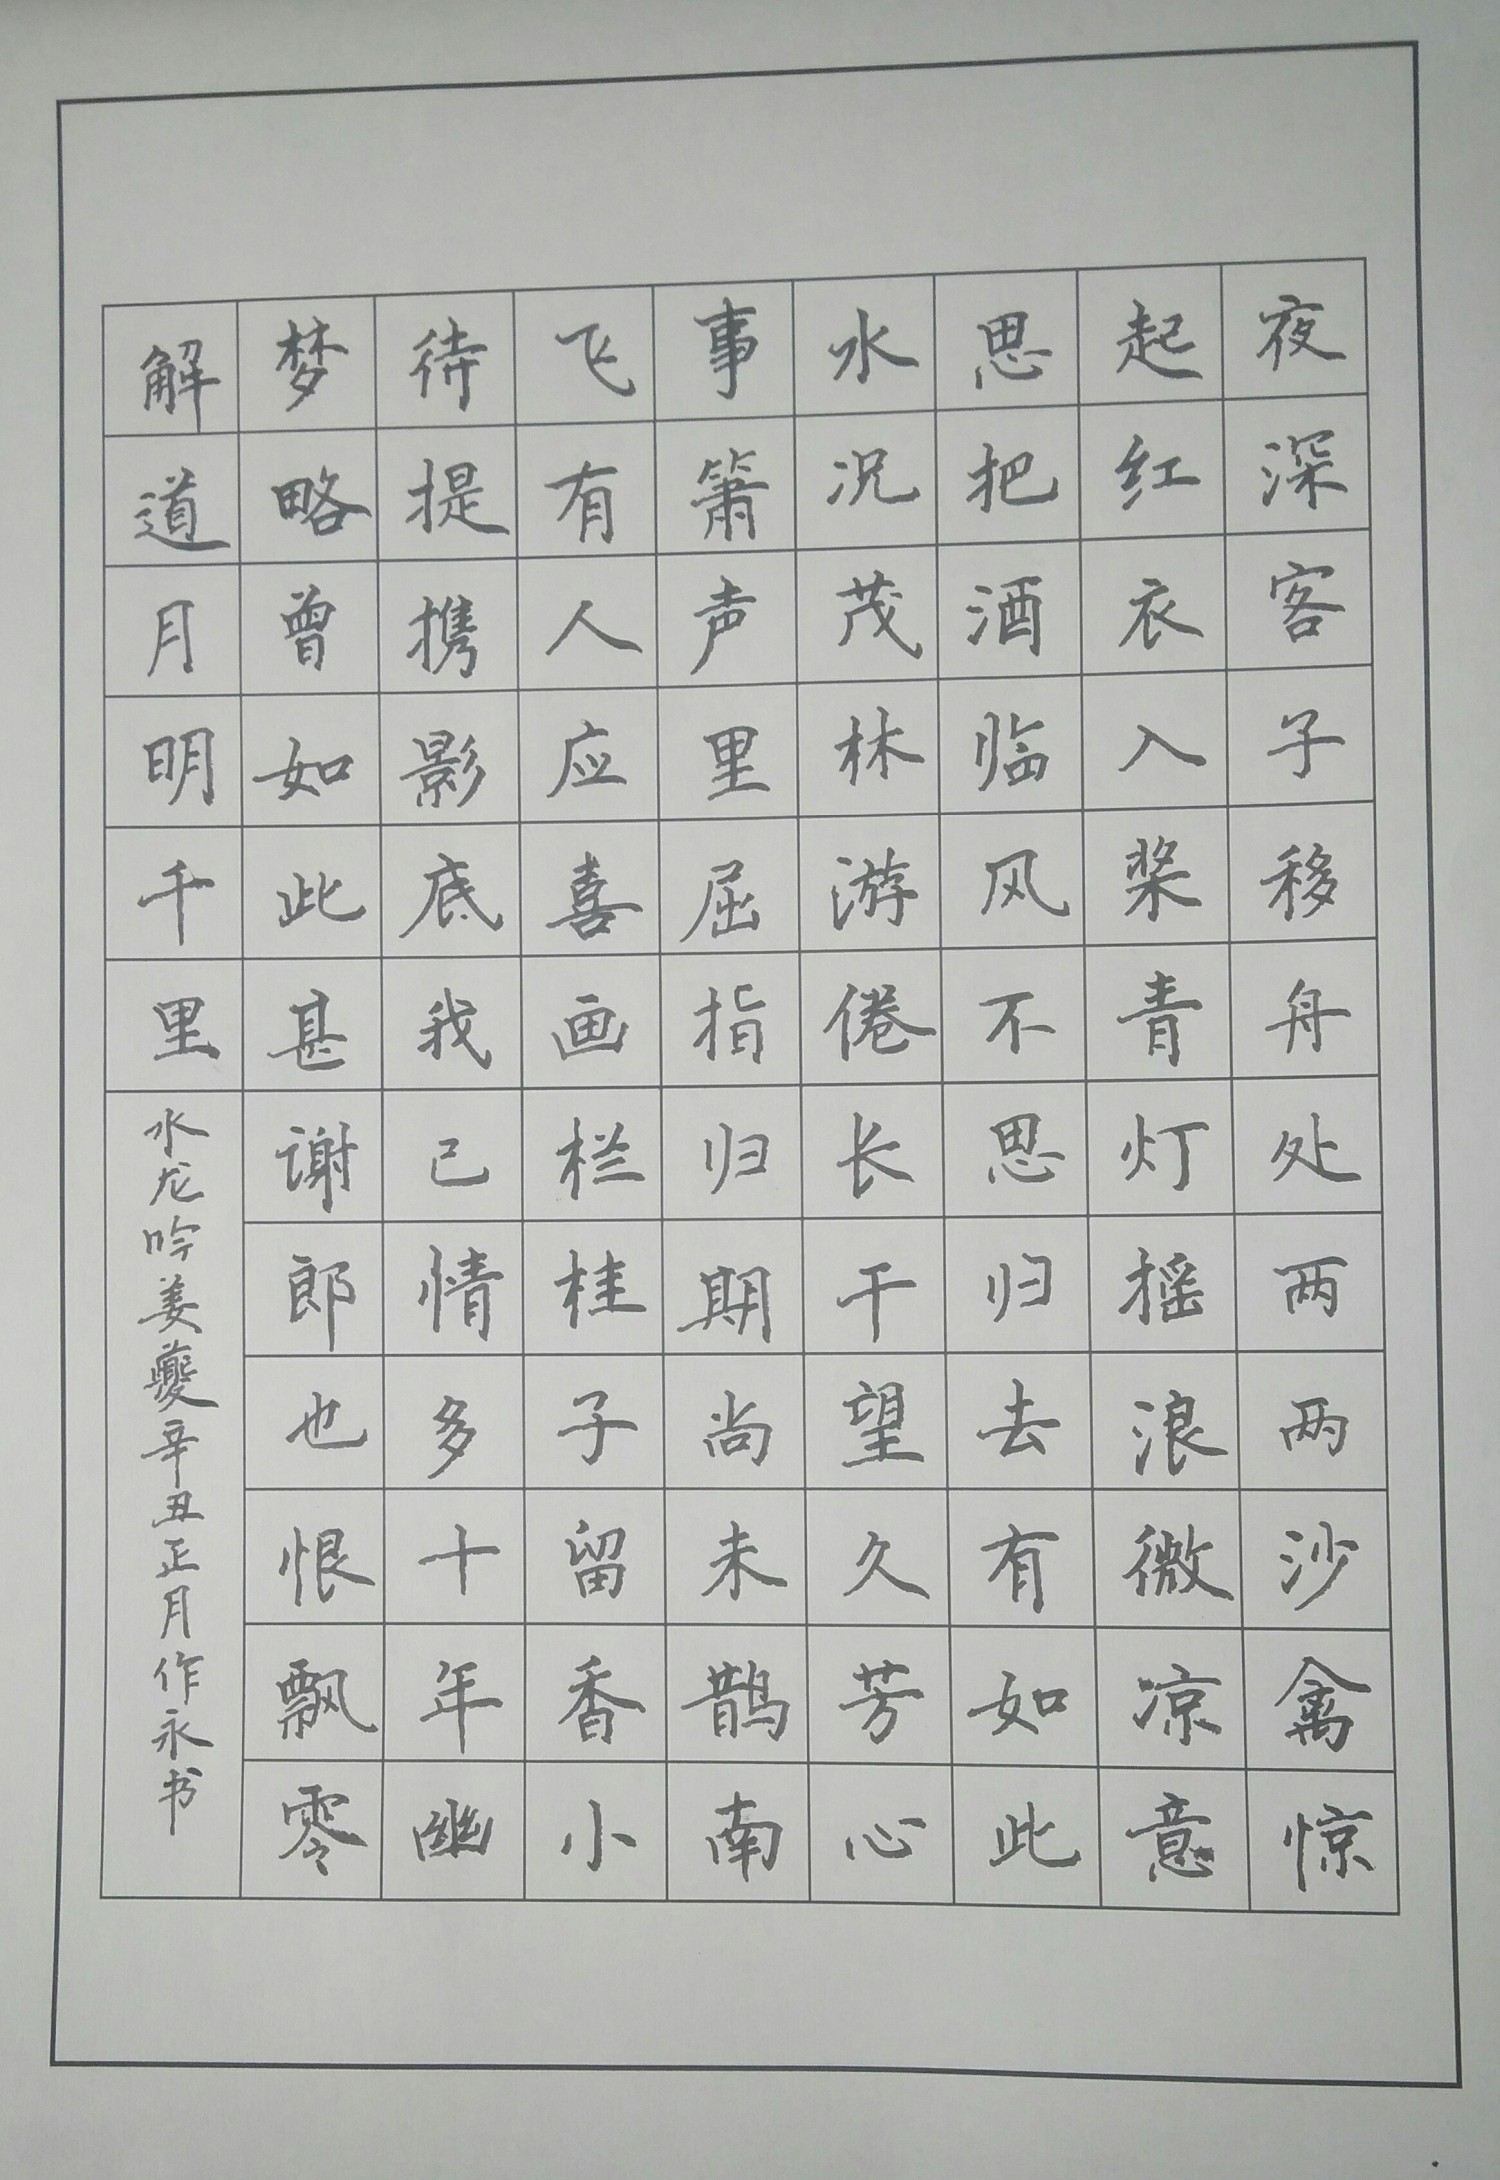 夜深客子移舟处两两沙禽惊
起红衣入桨青灯摇浪微凉意
思把酒临风不思归去有如此
水况茂林游倦长干望久芳心
事箫声里屈指归期尚未鹊南
飞有人应喜画栏桂子留香小
待提携影底我已情多十年幽
梦略曾如此甚谢郎也恨飘零
解道月明千里
水龙吟姜夔辛丑正月作永书